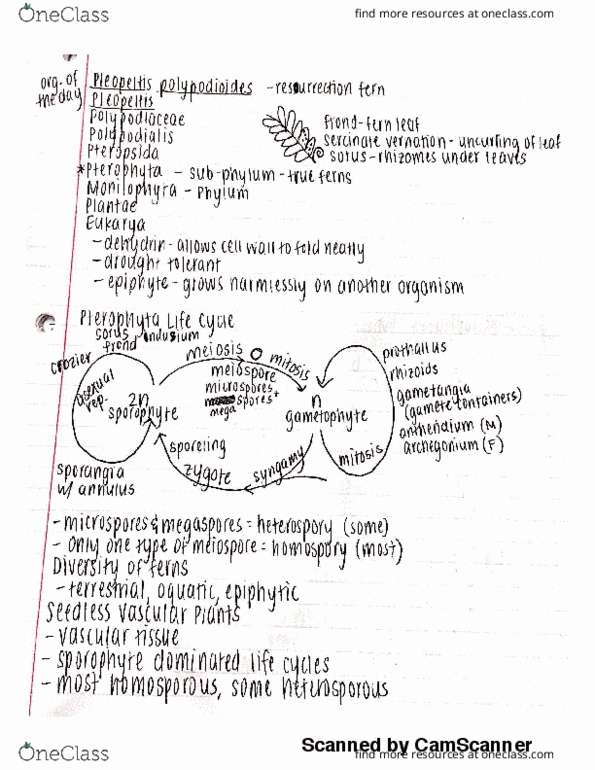 OneClass
find more resources at oneclass.com
org. of the day
Pleopeltis polypodioides - resurrection fern
Pleopeltis
Polypodiaceae
Polypodialis
Pteropsida
*Pterophyta - sub-phylum - true ferns
Monilophyta - Phylum
Plantae
Eukarya
frond - fern leaf
sercinate vernation - uncurling of leaf
sorus - rhizomes under leaves
- dehydrin - allows cell wall to fold neatly
- drought tolerant
- epiphyte - grows harmlessly on another organism
Pterophyta Life Cycle
sorus indusium
frond
crozier
asexual rep.
2n
sporophyte
sporangia
w/ annulus
meiosis
meiospore
microspores +
mega spores
mitosis
n
gametophyte
prothallus
rhizoids
gametangia
(gamete containers)
antheridium (M)
archegonium (F)
mitosis
syngamy
zygote
sporeling
- microspores & megaspores = heterospory (some)
- only one type of meiospore = homospory (most)
Diversity of ferns
- terrestrial, aquatic, epiphytic
Seedless Vascular Plants
- vascular tissue
- sporophyte dominated life cycles
- most homosporous, some heterosporous
Scanned by CamScanner
OneClass
find more resources at oneclass.com